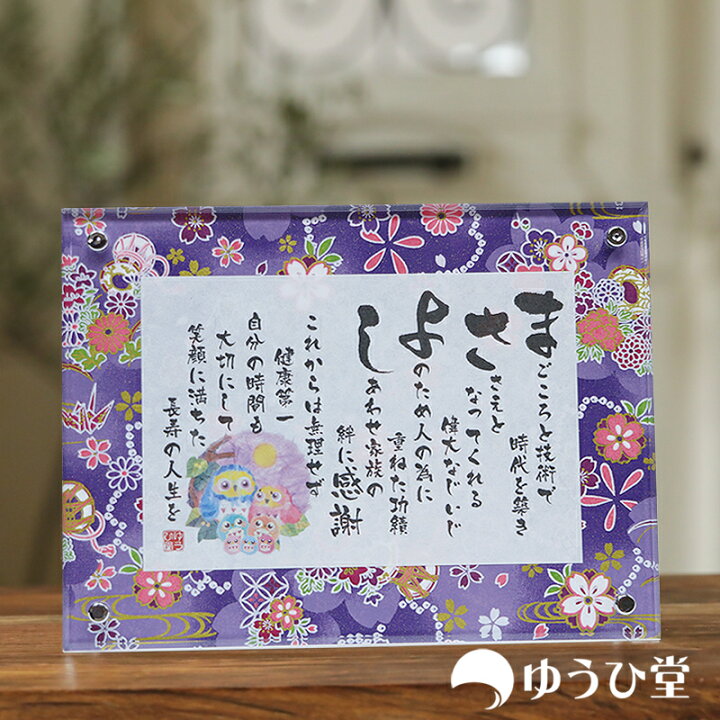 まごころと技術で
時代を築き
ささえと
なってくれる
偉大なじいじ
よのため人の為に
重ねた功績
しあわせ家族の
絆に感謝
これからは無理せず
健康第一
自分の時間も
大切にして
笑顔に満ちた
長寿の人生を
ゆうひ堂